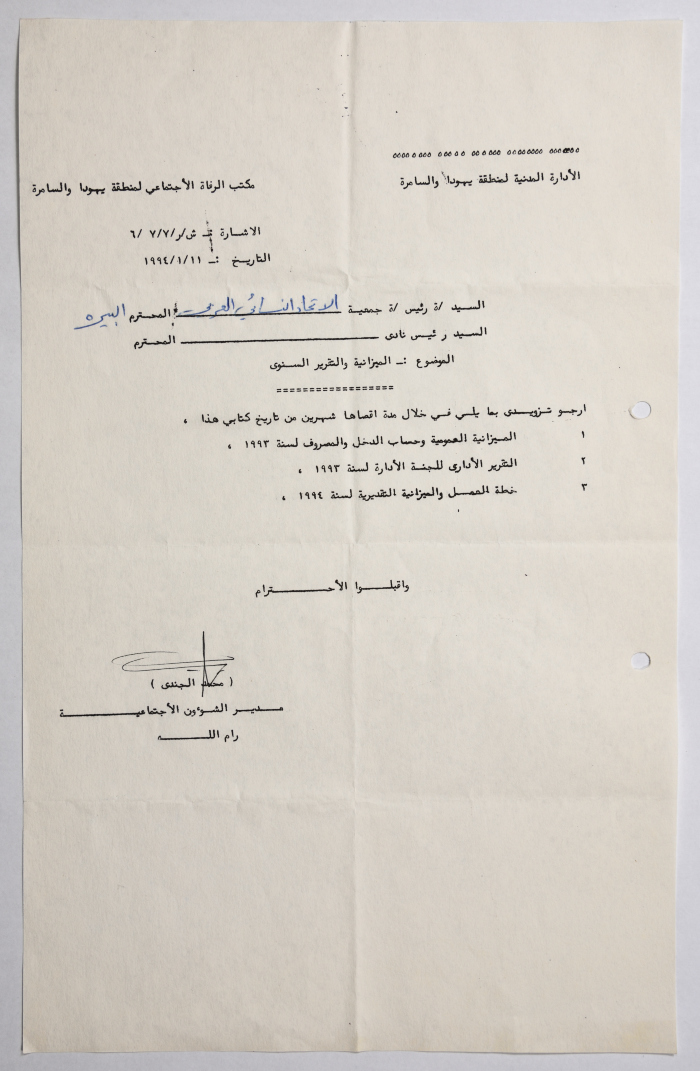 الأدارة المدنية لمنطقة يهودا والسامرة
مكتب الرفاة الأجتماعي لمنطقة يهودا والسامرة
الاشارة ش/ر/٧/٧ /٦
التاريخ :ـ ١٩٩٤/١/١١
السيد /ة رئيس /ة جمعية الاتحاد النسائي العربي المحترم البيره
السيد رئيس نادى المحترم
الموضوع :ـ الميزانية والتقرير السنوى
==================
ارجو تزويدى بما يلي في خلال مدة اقصاها شهرين من تاريخ كتابي هذا ،
١ الميزانية العمومية وحساب الدخل والمصروف لسنة ١٩٩٣ ،
٢ التقرير الأدارى للجنة الأدارة لسنة ١٩٩٣ ،
٣ خطة العمـل والميزانية التقديرية لسنة ١٩٩٤ ،
واقبلـــوا الأحـــــترام
( محمد الجندى )
مـدیـر الشوءون الأجتماعيـــــة
رام اللــــه